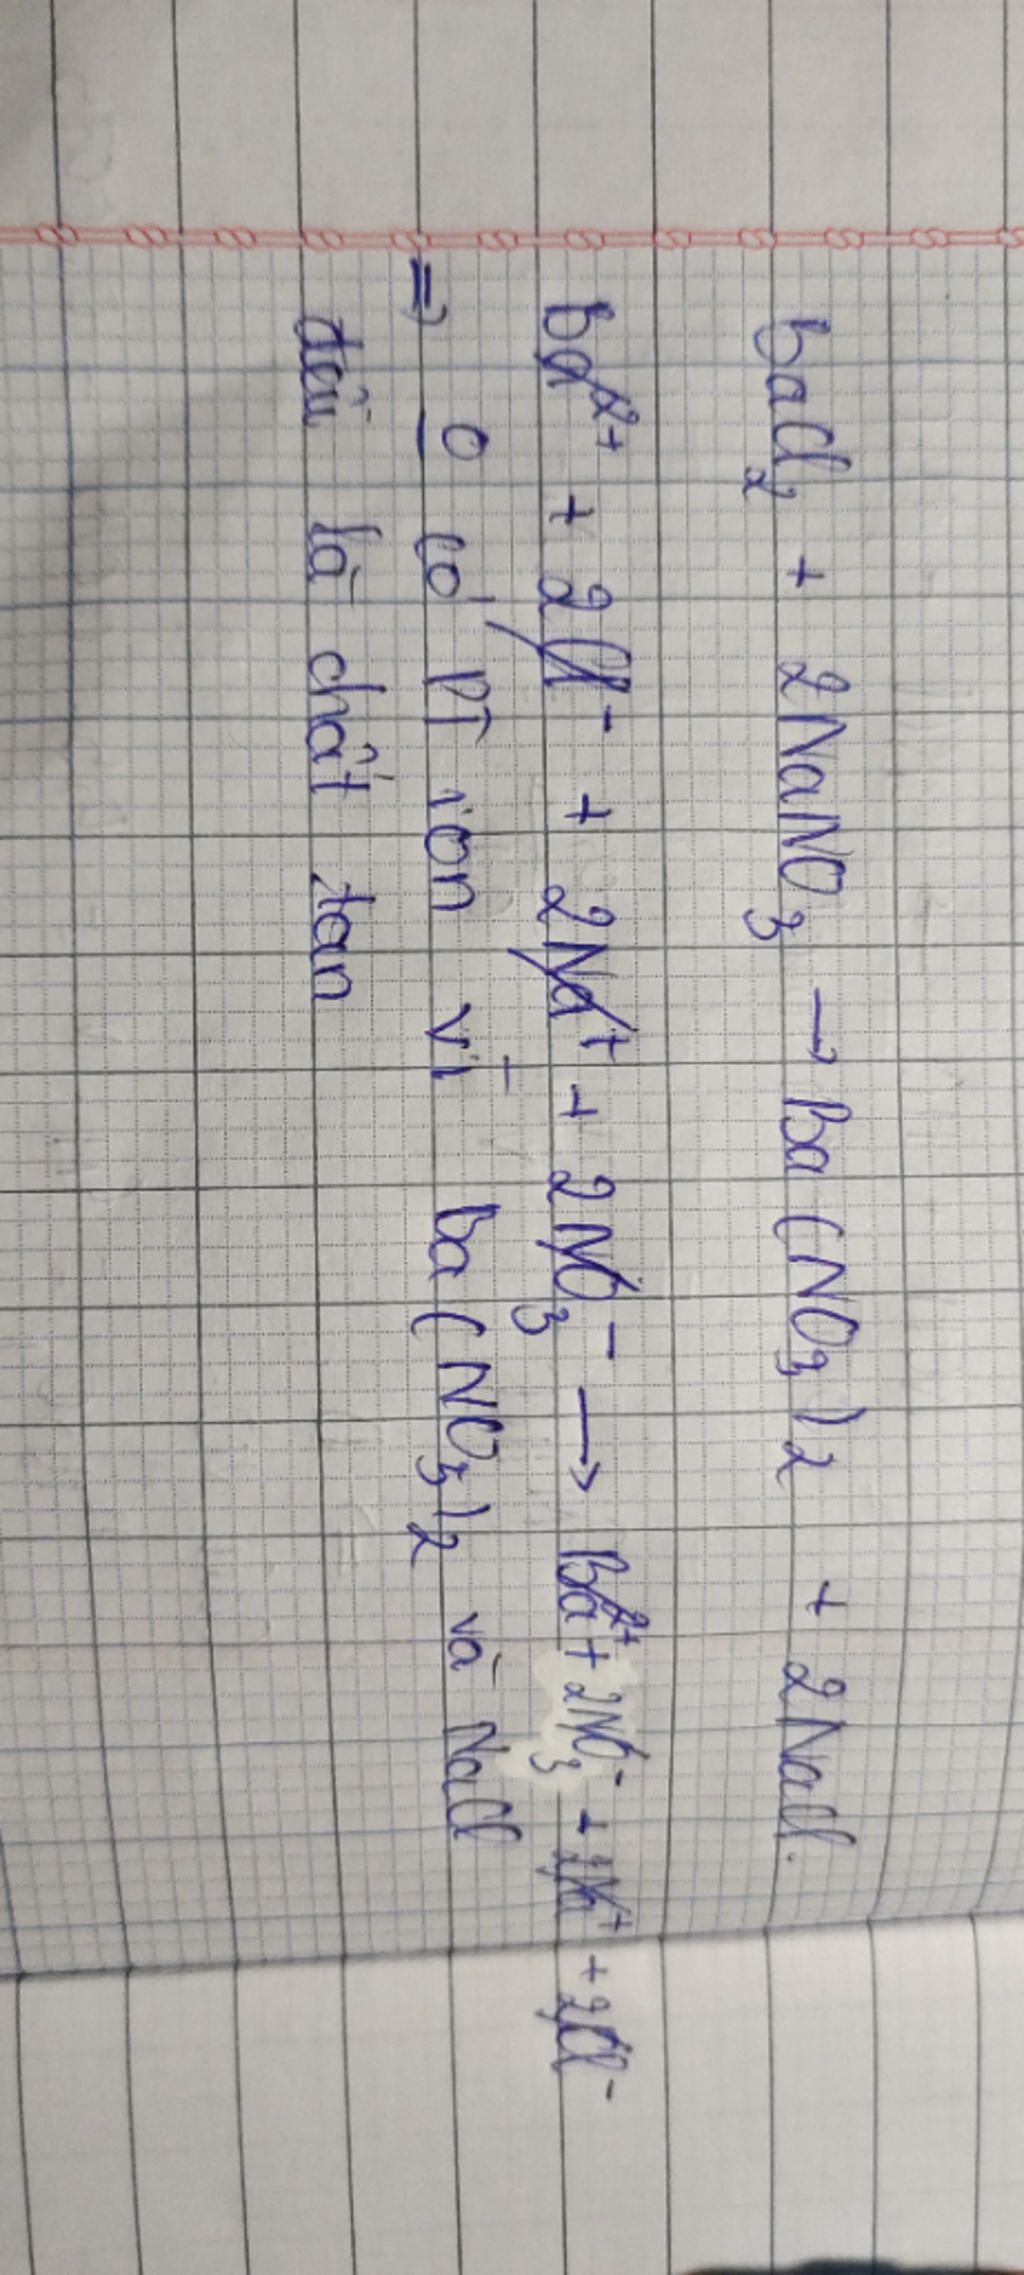 BaCl₂ + 2NaNO₃ → Ba(NO₃)₂ + 2NaCl.
Ba²⁺ + 2Cl⁻ + 2Na⁺ + 2NO₃⁻ → Ba²⁺ + 2NO₃⁻ + 2Na⁺ + 2Cl⁻
⇒ 0 có PT ion vì Ba(NO₃)₂ và NaCl
đều là chất tan